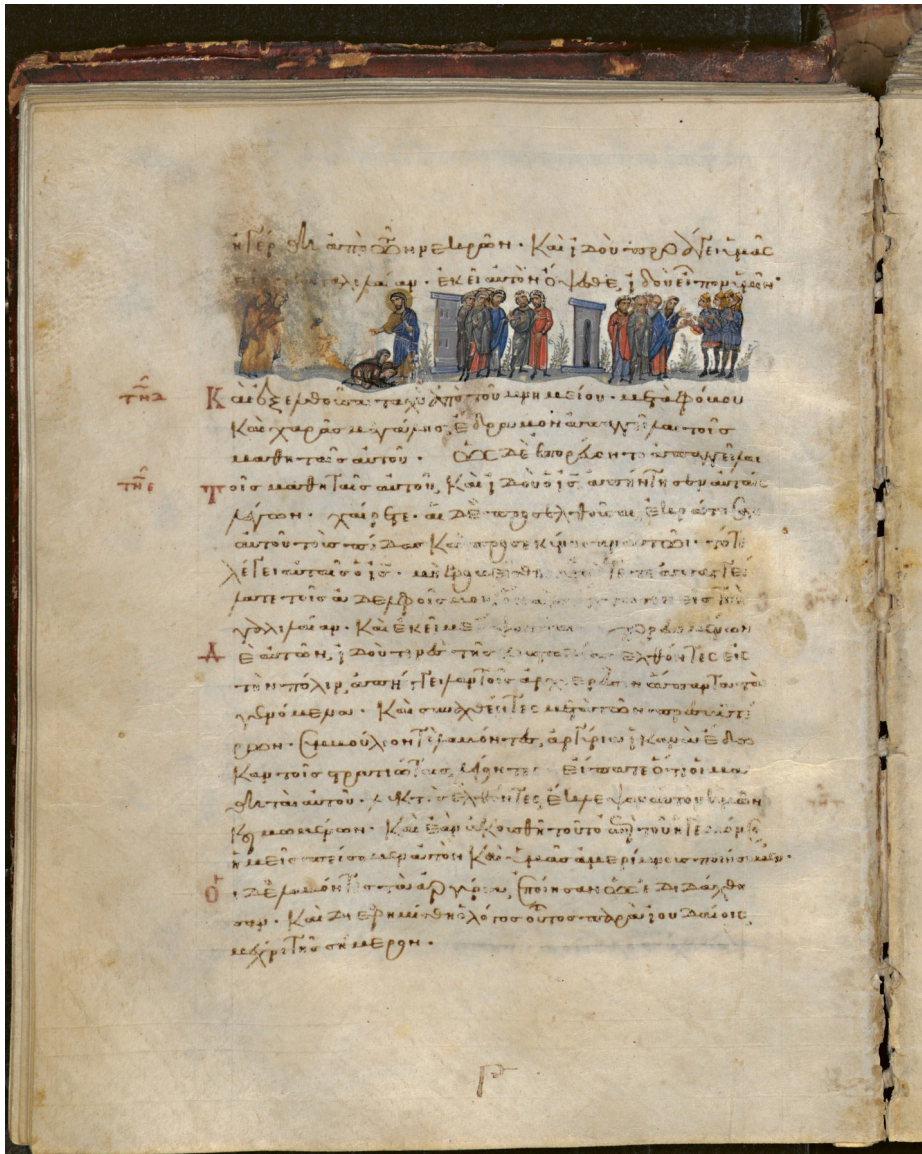 ἠγέρθη ἀπὸ τῶν νεκρῶν· Καὶ ἰδοὺ προάγει ὑμᾶς
γαλιλαίαν· ἐκεῖ αὐτὸν ὄψεσθε, ἰδοὺ εἶπον ὑμῖν·
Καὶ ἐξελθοῦσαι ταχὺ ἀπὸ τοῦ μνημείου· μετὰ φόβου
Καὶ χαρᾶς μεγάλης, ἔδραμον ἀπαγγεῖλαι τοῖς
μαθηταῖς αὐτοῦ· ὡς δὲ ἐπορεύοντο ἀπαγγεῖλαι
τοῖς μαθηταῖς αὐτοῦ, Καὶ ἰδοὺ ὁ ις ἀπήντησεν αὐταῖς
λέγων· χαίρετε· αἱ δὲ προσελθοῦσαι, ἐκράτησαν
αὐτοῦ τοὺς πόδας Καὶ προσεκύνησαν αὐτῷ· τότε
λέγει αὐταῖς ὁ ις· μὴ φοβεῖσθε ὑπάγετε ἀπαγγεί
λατε τοῖς ἀδελφοῖς μου, εἰς τὴν
γαλιλαίαν· Καὶ ἐκεῖ με πορευομένων
δὲ αὐτῶν, ἰδού τινες τῆς κουστωδίας ἐλθόντες εἰς
τὴν πόλιν, ἀπήγγειλαν τοῖς ἀρχιερεῦσιν ἅπαντα τὰ
γενόμενα· Καὶ συναχθέντες μετὰ τῶν πρεσβυτέ
ρων· συμβούλιόν τε λαβόντες, ἀργύρια ἱκανὰ ἔδω
καν τοῖς στρατιώταις, λέγοντες· εἴπατε ὅτι οἱ μα
θηταὶ αὐτοῦ· νυκτὸς ἐλθόντες, ἔκλεψαν αὐτὸν ἡμῶν
κοιμωμένων· Καὶ ἐὰν ἀκουσθῇ τοῦτο ἐπὶ τοῦ ἡγεμόνος,
ἡμεῖς πείσομεν αὐτὸν Καὶ ὑμᾶς ἀμερίμνους ποιήσομεν·
Οἱ δὲ λαβόντες τὰ ἀργύρια, ἐποίησαν ὡς ἐδιδάχθη
σαν· Καὶ διεφημίσθη ὁ λόγος οὗτος παρὰ ἰουδαίοις
μέχρι τῆς σήμερον·